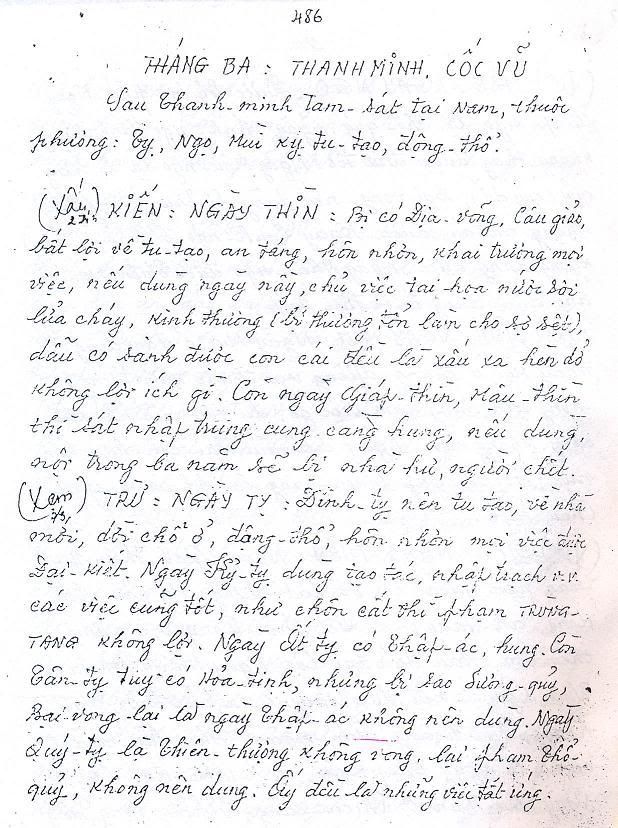 486
THÁNG BA : THANH MINH, CỐC VŨ
Sau Thanh-minh Tam-sát tại Nam, thuộc
phương: Tỵ, Ngọ, Mùi kỵ tu-tạo, động-thổ.
(Xấu) KIẾN : NGÀY THÌN : Bị có Địa-võng, Câu giảo,
bất lợi về tu-tạo, an táng, hôn nhơn, khai trương mọi
việc, nếu dùng ngày này, chủ việc tai họa nước sôi
lửa cháy, Kinh thương (bị thương tổn làm cho sợ sệt),
dầu có sành được con cái đều là xấu xa hèn dở
không lời ích gì. Còn ngày Giáp-thìn, Mậu-thìn
thì sát nhập trung cung càng hung, nếu dùng,
nội trong ba năm sẽ bị nhà hư, người chết.
(Xem) TRỪ : NGÀY TỴ : Đinh-tỵ nên tu tạo, về nhà
mới, dời chỗ ở, động-thổ, hôn nhơn mọi việc được
Đại-kiết. Ngày Kỷ-tỵ dùng tạo tác, nhập trạch v.v.
các việc cũng tốt, như chôn cất thì phạm TRÙNG-
TANG không lợi. Ngày Ất tỵ có Thập-ác, hung. Còn
Tân-tỵ tuy có Hỏa-tinh, nhưng bị sao Sương-quỷ,
Bại-vong lại là ngày Thập-ác không nên dùng. Ngày
Quý-tỵ là Thiên-thượng không vong, lại phạm Thổ-
quỷ, không nên dùng. Ấy đều là những việc tất ứng.